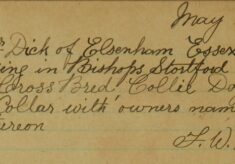 May
Dick of Elsenham Essex
ing in Bishops Stortford
Cross Bred Collie Do
Collar with owners nam
ereon
F.W.